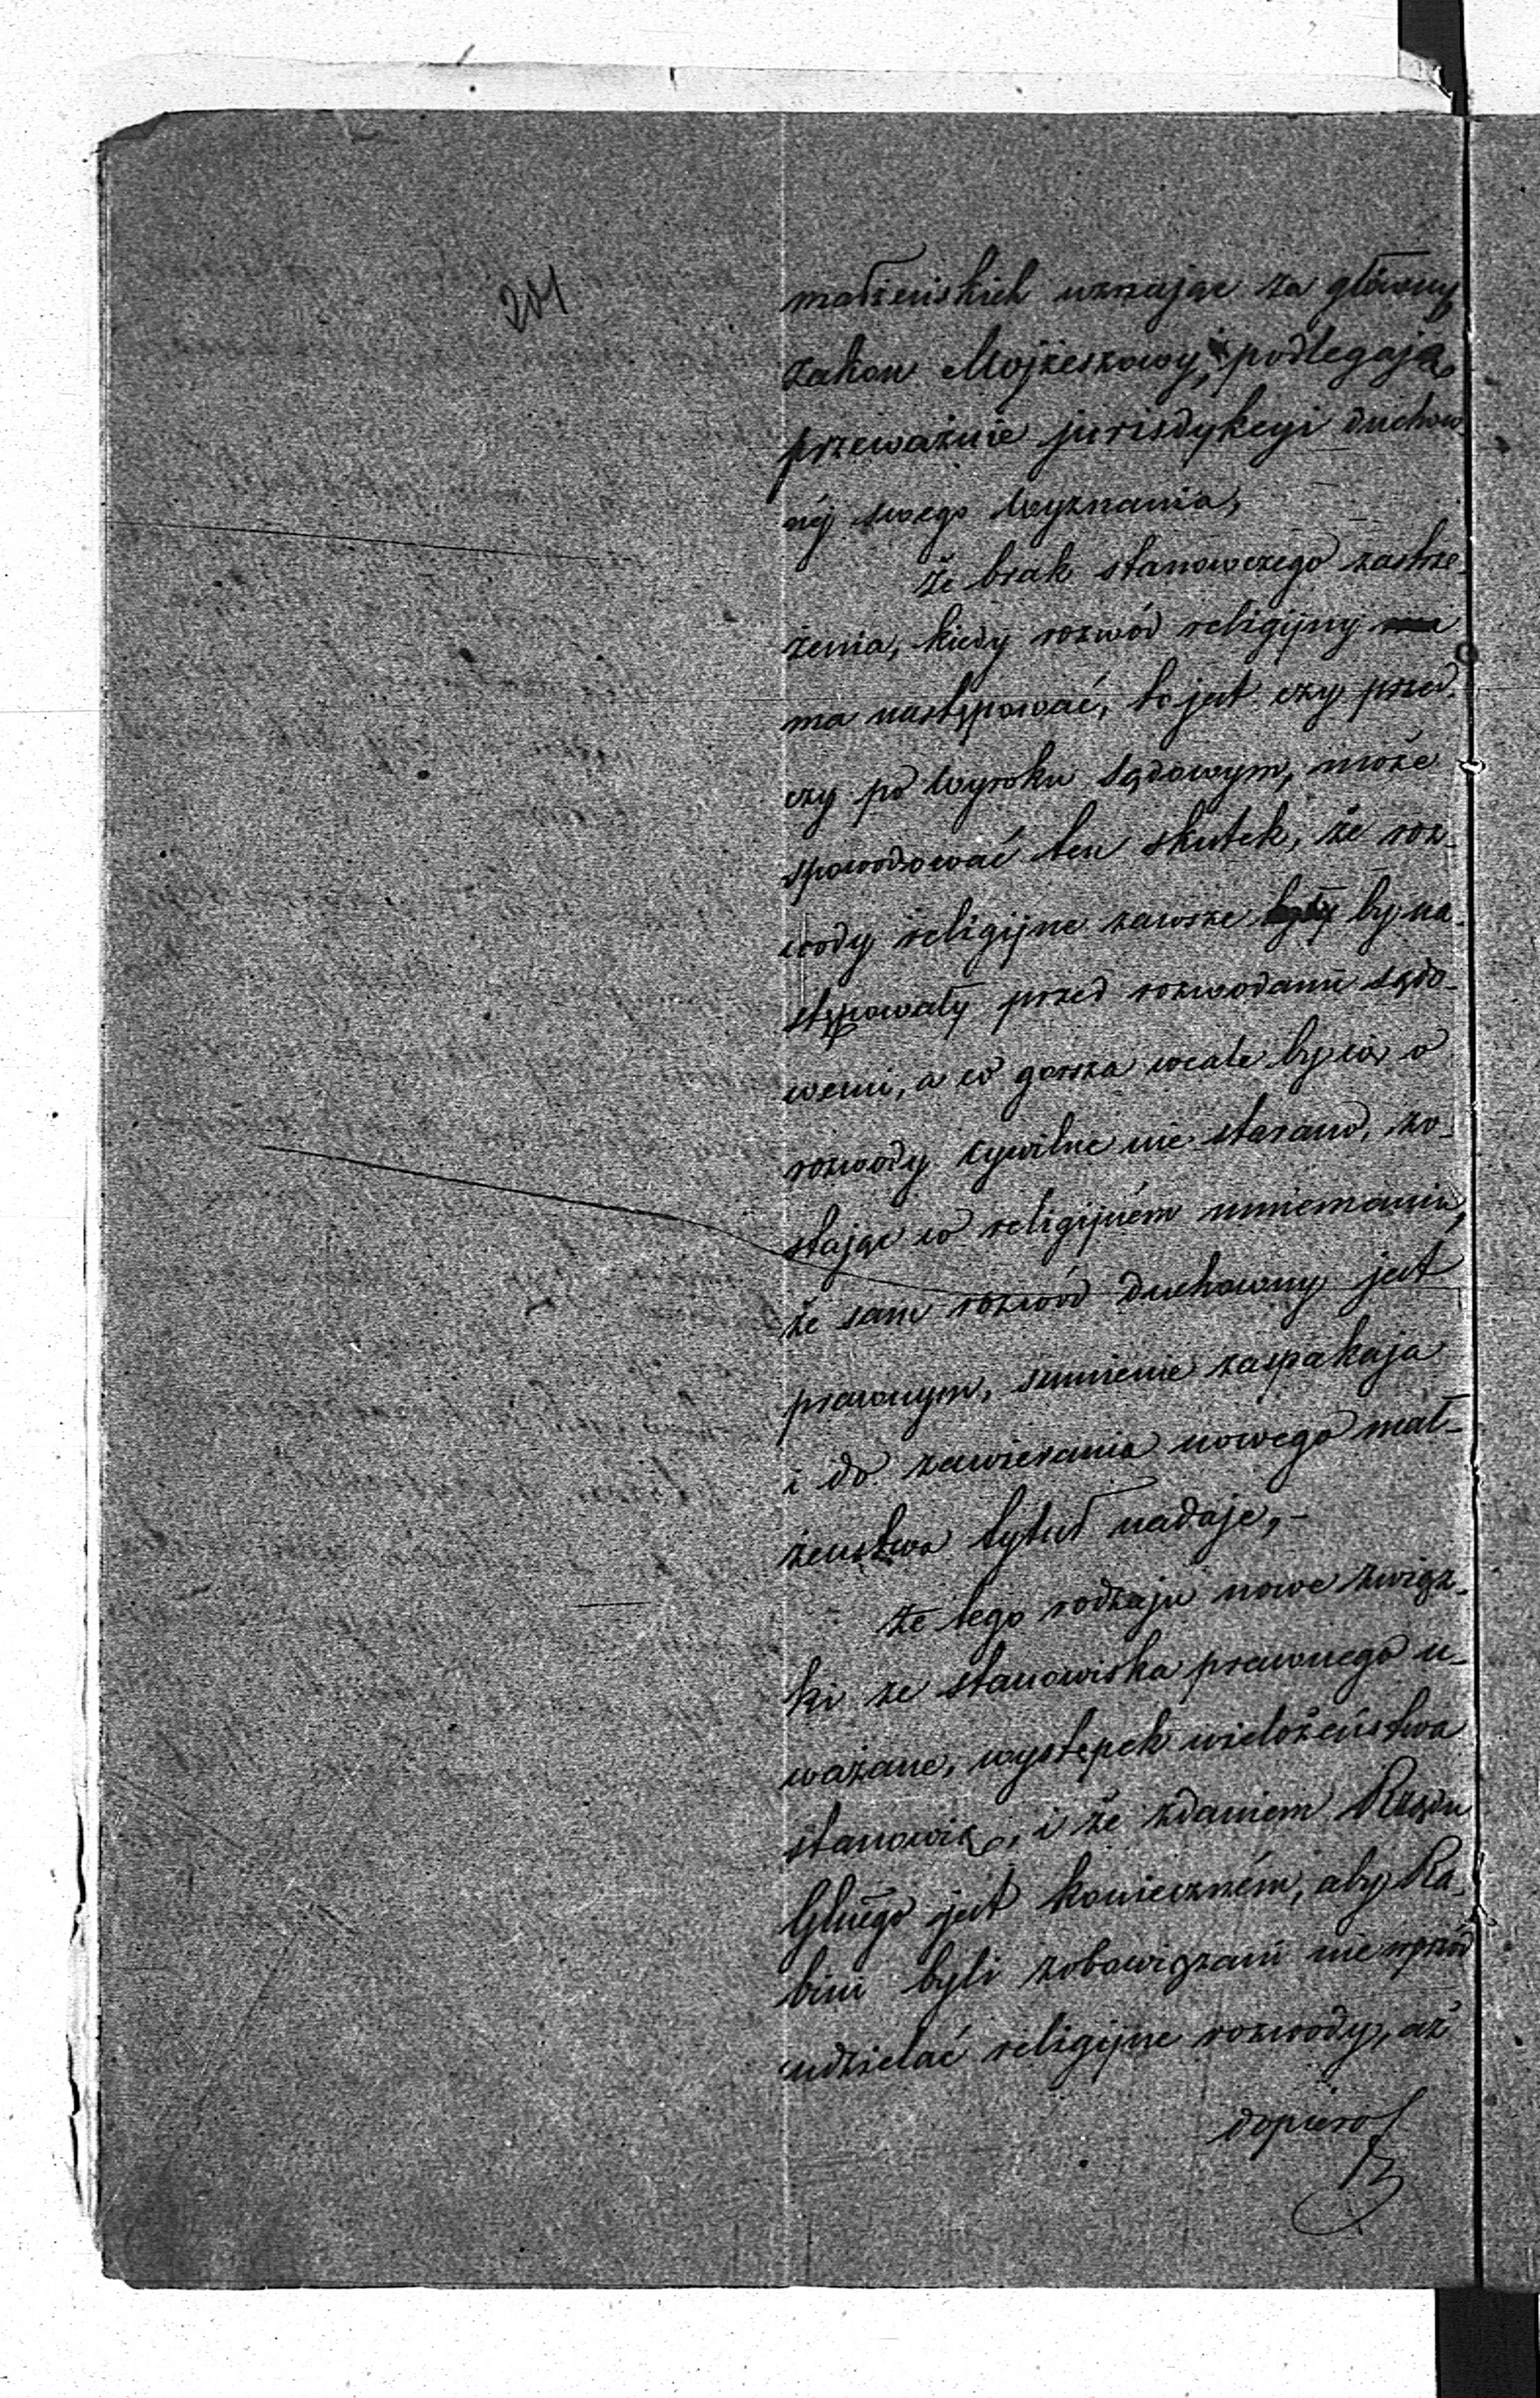 201
małżeńskich uznając za główny
zakon Mojżeszowy, podlegają
przeważnie jurisdykcyi duchow
néj swego Wyznania,
że brak stanowczego zastrze-
żenia, kiedy rozwód religijny
ma następować, to jest czy przed
czy po Wyroku Sądowym, może
spowodować ten skutek, że roz-
wody religijne zawsze by na-
stępowały przed rozwodami sądo-
wemi, a co gorsza wcale by się o
rozwody cywilne nie starano, zo-
stając w religijném mniemaniu,
że sam rozwód duchowny jest
prawnym, sumienie zaspakaja
i do zawierania nowego mał-
żenstwa tytuł nadaje,-
że tego rodzaju nowe związ-
ki ze stanowiska prawnego u-
ważane, występek wielożeństwa
stanowią, i że zdaniem Rządu
Głnego jest konieczném, aby Ra-
bini byli zobowiązani nie wprzód
udzielać religijne rozwody, aż
dopiero